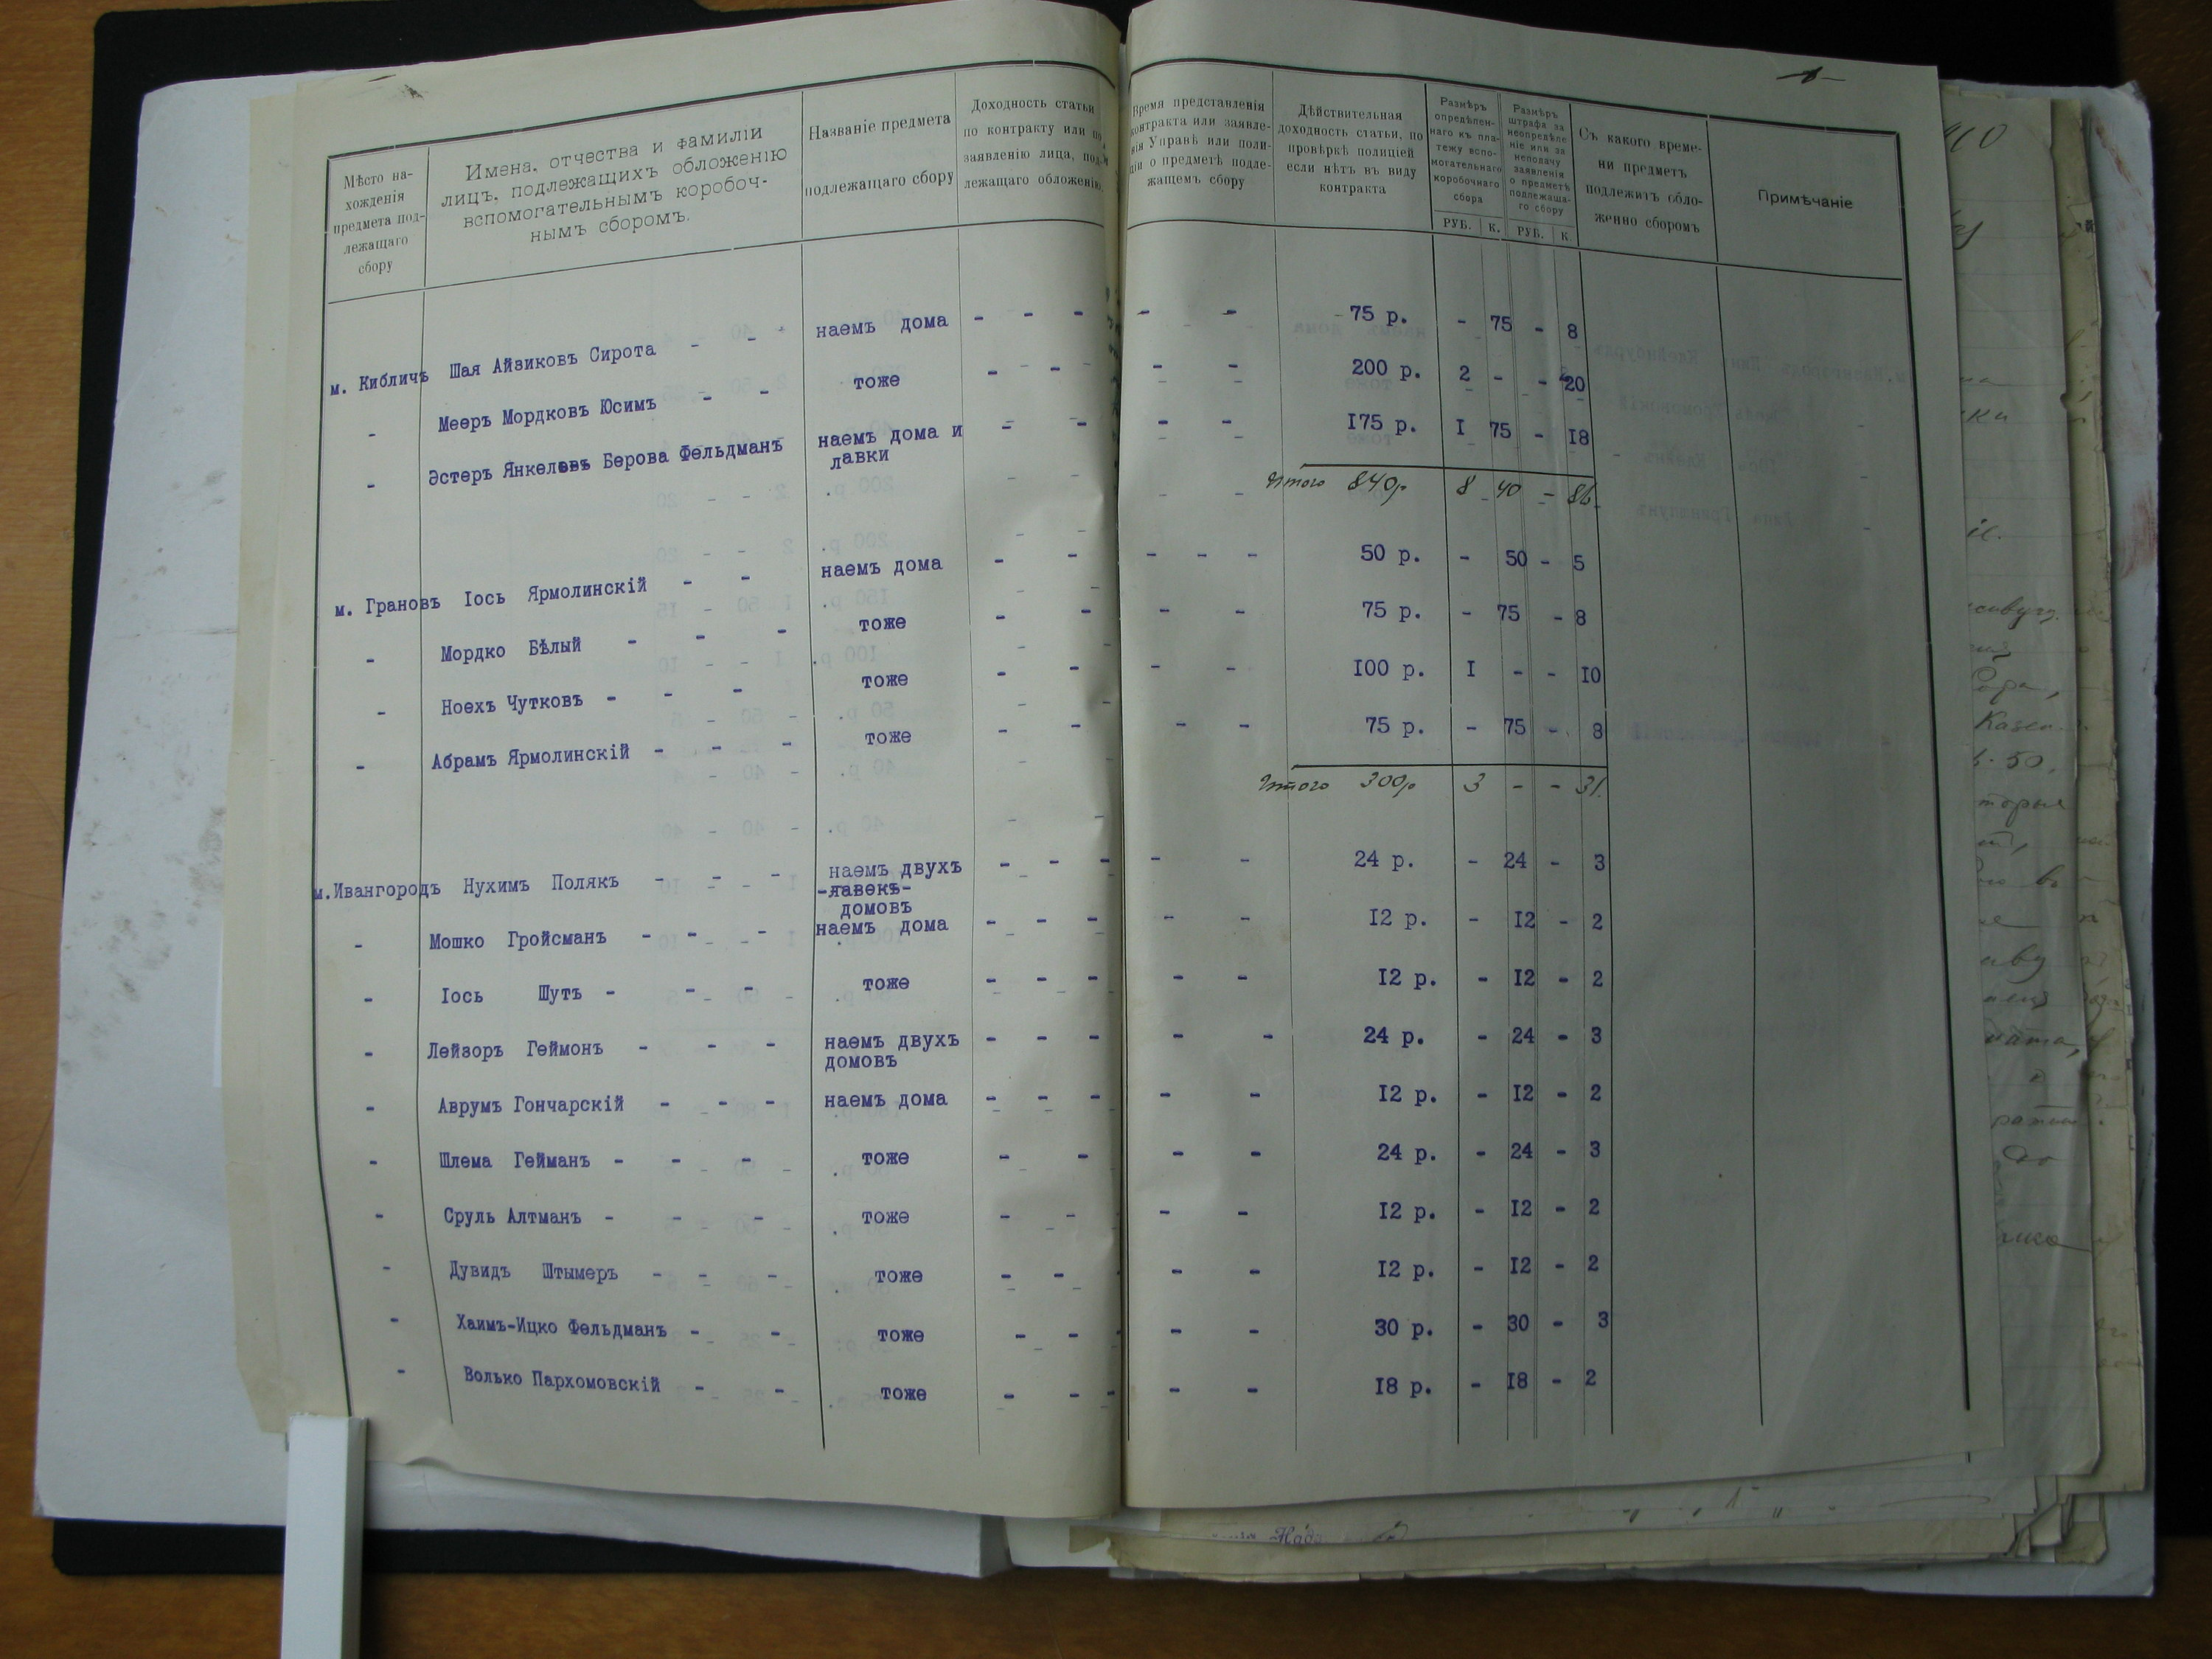 Мѣсто на-
хожденія
предмета под-
лежащаго
сбору
Имена, отчества и фамиліи
лицъ, подлежащихъ обложенію
вспомогательнымъ коробоч-
нымъ сборомъ.
Названіе предмета
подлежащаго сбору
Доходность статьи
по контракту или по
заявленію лица, под-
лежащаго обложенію.
Время представленія
контракта или заявле-
нія Управѣ или поли-
ціи о предметѣ подле-
жащемъ сбору
Дѣйствительная
доходность статьи, по
провѣркѣ полиціей
если нѣтъ въ виду
контракта
Размѣръ
опредѣлен-
наго къ пла-
тежу вспо-
могательнаго
коробочнаго
сбора
РУБ. К.
Размѣръ
штрафа за
неопредѣле
ніе или за
неподачу
заявленія
о предметѣ
подлежаща-
го сбору
РУБ. К
Съ какого време-
ни предметъ
подлежитъ обло-
женію сборомъ
Примѣчаніе
м. Кибличъ Шая Айзиковъ Сирота - - наемъ дома - - - - - 75 р. - 75 - 8
- Мееръ Мордковъ Юсимъ - - тоже - - - - - 200 р. 2 - - 20
- Эстеръ Янкелевъ Берова Фельдманъ наемъ дома и - - - - 175 р. I 75 - I8
лавки
Итого 840р 8 40 - 86
м. Грановъ Іось Ярмолинскій - - наемъ дома - - - - - 50 р. - 50 - 5
- Мордко Бѣлый - - - тоже - - - - 75 р. - 75 - 8
- Ноехъ Чутковъ - - - тоже - - - - I00 р. I - - I0
- Абрамъ Ярмолинскій - - - тоже - - - - 75 р. - 75 - 8
Итого 300р 3 - - 31.
м.Ивангородъ Нухимъ Полякъ - - - наемъ двухъ - - - - - 24 р. - 24 - 3
-лавекъ-
домовъ
- Мошко Гройсманъ - - - наемъ дома - - - - - I2 р. - I2 - 2
- Іось Шутъ - - - тоже - - - - - I2 р. - I2 - 2
- Лейзоръ Геймонъ - - - наемъ двухъ - - - - - 24 р. - 24 - 3
домовъ
- Аврумъ Гончарскій - - - наемъ дома - - - - - I2 р. - I2 - 2
- Шлема Гейманъ - - - тоже - - - - 24 р. - 24 - 3
- Сруль Алтманъ - - - тоже - - - - I2 р. - I2 - 2
- Дувидъ Штымеръ - - - тоже - - - - I2 р. - I2 - 2
- Хаимъ-Ицко Фельдманъ - - тоже - - - - 30 р. - 30 - 3
- Волько Пархомовскій - - тоже - - - - I8 р. - I8 - 2